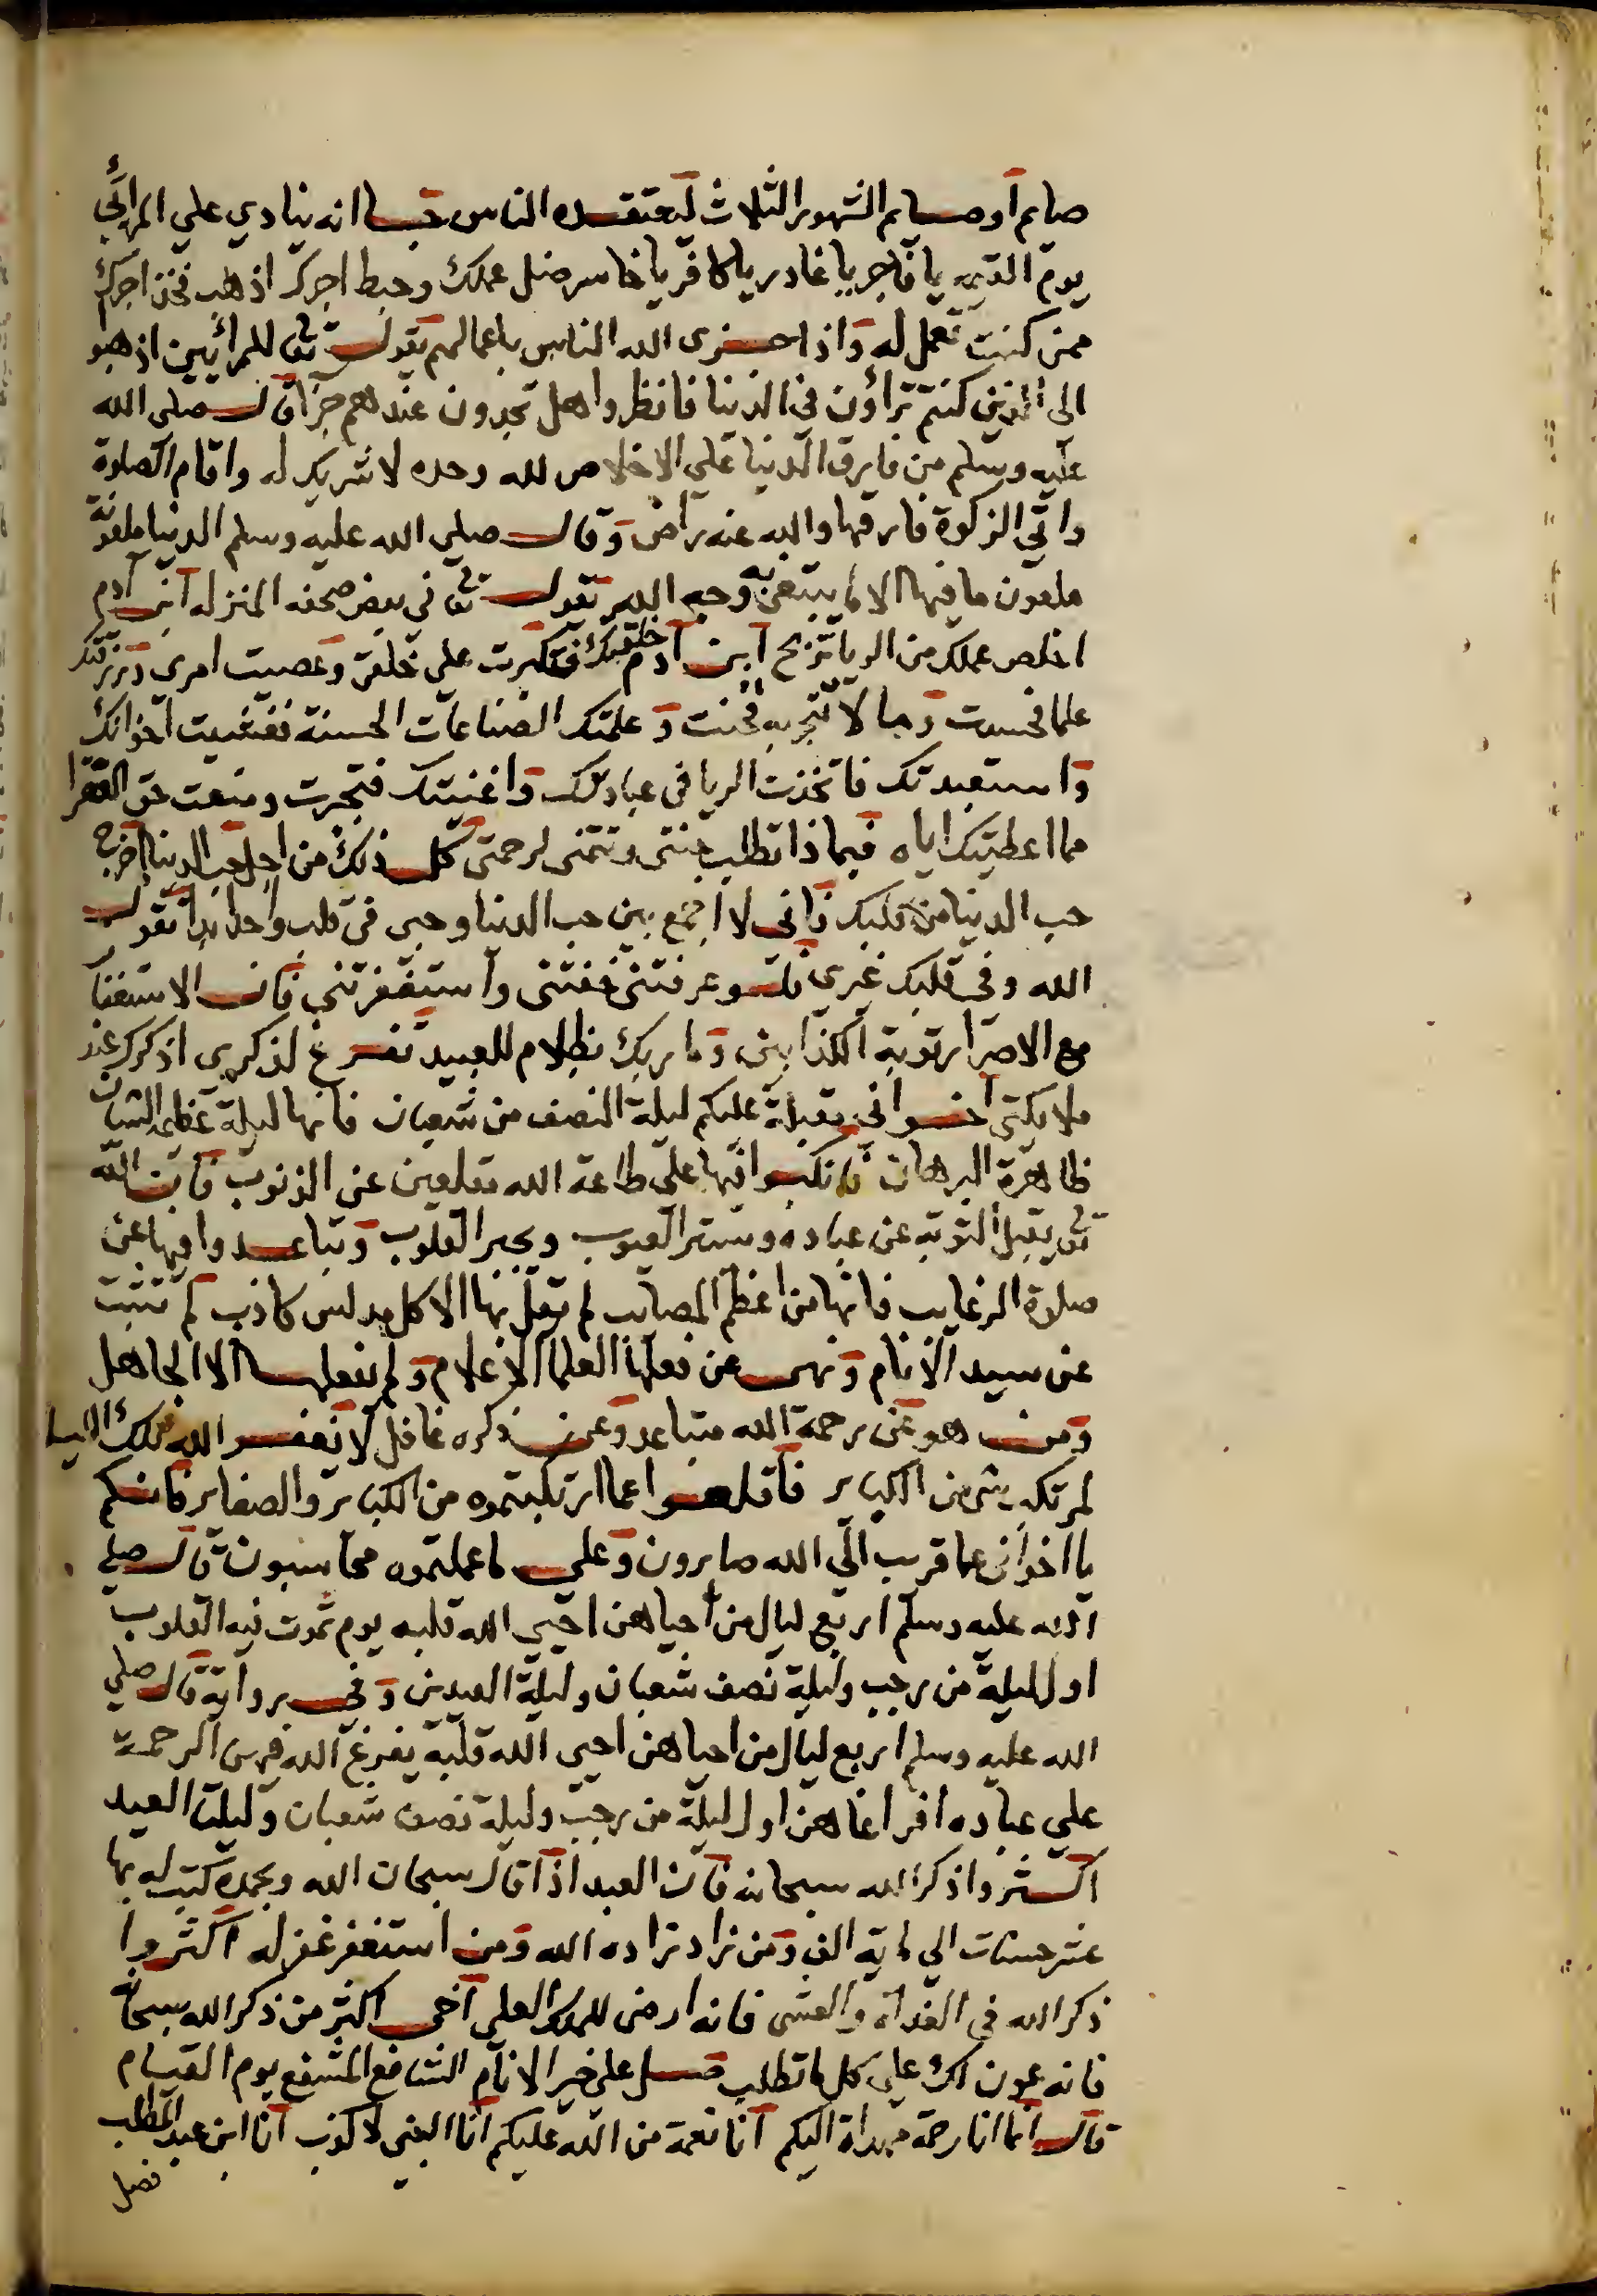 صايم او صايم الشهور الثلاث ليعتقده الناس جا انه ينادي علي المرائي
يوم القيمه يا فاجر يا غادر يا كافر يا خاسر ضل عملك وحبط اجرك اذهب فخذ اجرك
ممن كنت تعمل له واذا جزى الله الناس باعمالهم يقول تعا للمرائيين اذهبو
الى الذين كنتم تراؤن في الدنيا فانظروا هل تجدون عندهم جزا قال صلى الله
عليه وسلم من فارق الدنيا علي الاخلاص لله وحده لا شريك له واقام الصلوة
واتي الزكوة فارقها والله عنه راض وقال صلي الله عليه وسلم الدنيا ملعونة
ملعون ما فيها الا ما يبتغى به وجه الله يقول تعا في بعض صحفه المنزله ابن آدم
اخلص عملك من الريا تربح ابن آدم خلقتك فتكبرت علي خلقي وعصيت امرى ورزقتك
علما فحسدت ومالا تتجر به فخنت وعلمتك الصناعات الحسنة فغشيت اخوانك
واستعبدتك فاتخذت الريا في عبادتك واغنيتك فتجبرت ومنعت حق الفقرا
مما اعطيتك اياه فبماذا تطلب جنتى وتتمنى رحمتى كل ذلك من اجل حب الدنيا اخرج
حب الدنيا من قلبك فاني لا اجمع بين حب الدنيا وحبى في قلب واحد ابدا تقول
الله وفي قلبك غيرى فلو عرفتنى خفتنى واستغفرتني فان الاستغفا
مع الاصرار توبة الكذابين وما ربك بظلام للعبيد تفرغ لذكري اذكرك عند
ملايكتي اخواني مقبلة عليكم ليلة النصف من شعبان فانها ليلة عظيمة الشان
ظاهرة البرهان فانكبوا فيها علي طاعة الله مقلعين عن الذنوب فان الله
تعا يقبل التوبه عن عباده ويستر العيوب ويجبر القلوب وتباعدوا فيها عن
صلوة الرغايب فانها من اعظم المصايب لم يقل بها الا كل مدلس كاذب لم تثبت
عن سيد الانام ونهى عن فعلها العلما الاعلام ولم يفعلها الا الجاهل
ومن هو عن رحمة الله متباعد وعن ذكره غافل لا يغفر الله تلك الليلة
لمرتكب شى من الكباير فاقلعوا عما ارتكبتموه من الكباير والصغاير فانكم
يا اخواني عما قريب الي الله صايرون وعلي ما عملتموه محاسبون قال صلي
الله عليه وسلم اربع ليال من احياهن احيى الله قلبه يوم تموت فيه القلوب
اول ليلة من رجب وليلة نصف شعبان وليلة العيدين وفي رواية قال صلي
الله عليه وسلم اربع ليال من احياهن احيى الله قلبه يفرغ الله فيهن الرحمة
علي عباده افراغا هن اول ليلة من رجب وليلة نصف شعبان وليلتا العيد
اكثروا ذكر الله سبحانه فان العبد اذا قال سبحان الله وبحمده كتب له بها
عشر حسنات الي ماية الف ومن زاد زاده الله ومن استغفر غفر له اكثروا
ذكر الله في الغداة والعشى فانه ارضى للملك العلي اخى اكثر من ذكر الله سبحانه
فانه عون لك علي كل ما تطلب وصل علي خير الانام الشافع المشفع يوم القيام
قال انما انا رحمة مهداة اليكم انا نعمة من الله عليكم انا النبي لا كذب انا ابن عبد المطلب
فصل